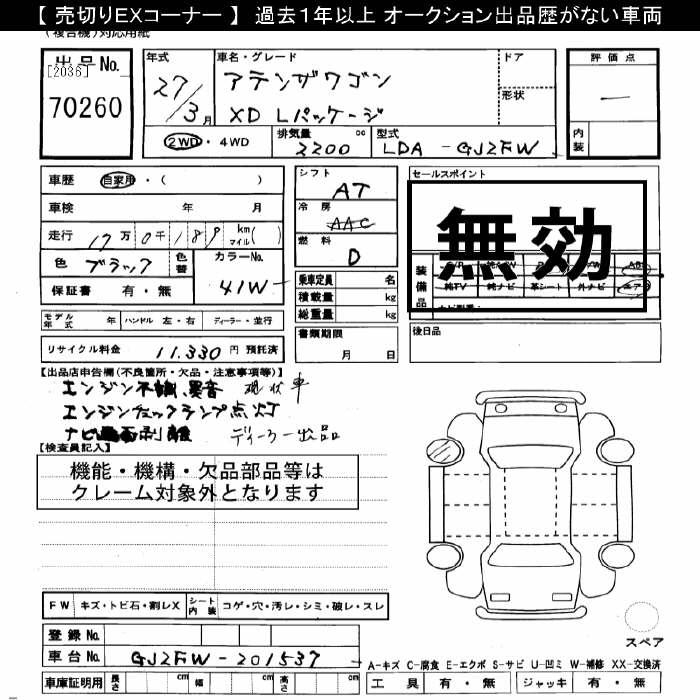 【 売切りEXコーナー 】 過去1年以上 オークション出品歴がない車両
(複合機)対応用紙
出品No.
[2036]
70260
年式
27/3月
車名・グレード
アテンザワゴン
XD Lパッケージ
ドア
形状
評価点
—
内装
2WD・4WD
排気量
2200
cc
型式
LDA - GJ2FW
車歴
自家用・( )
車検 年 月
走行 17万0千189 km マイル( )
色 ブラック
色替
カラーNo.
41W
保証書 有・無
シフト
AT
冷房
AAC
燃料
D
乗車定員 名
積載量 kg
総重量 kg
セールスポイント
無効
装備品
純TV
純ナビ
革シート
外ナビ
エアB
モデル年式 年
ハンドル 左・右
ディーラー・並行
書類期限
月 日
後日品
リサイクル料金 11,330 円 預託済
【出品店申告欄(不良箇所・欠品・注意事項等)】
エンジン不調、異音 現状車
エンジンチェックランプ点灯
ナビ画面剥離 ディーラー出品
【検査員記入】
機能・機構・欠品部品等は
クレーム対象外となります
FW
キズ・トビ石・割レX
シート内装
コゲ・穴・汚レ・シミ・破レ・スレ
登録No.
車台No. GJ2FW-201537
車庫証明用
長さ cm
幅 cm
高さ cm
スペア
A-キズ C-腐食 E-エクボ S-サビ U-凹ミ W-補修 XX-交換済
工具 有・無
ジャッキ 有・無